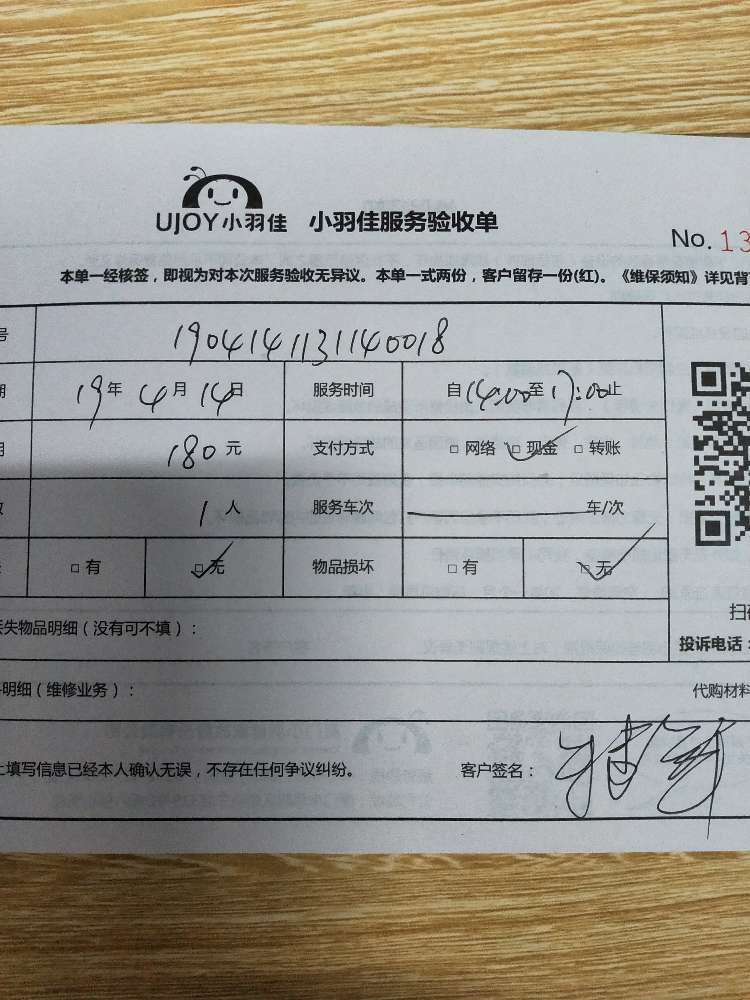 UJOY小羽佳 小羽佳服务验收单
No. 13
本单一经核签，即视为对本次服务验收无异议。本单一式两份，客户留存一份(红)。《维保须知》详见背
号 1904141131140018
期 19年 4月 14日 服务时间 自14:00至17:00止
用 180元 支付方式 □ 网络 □ 现金 □ 转账
数 1人 服务车次 车/次
□ 有 □ 无 物品损坏 □ 有 □ 无
扫
丢失物品明细（没有可不填）：
投诉电话：
明细（维修业务）：
代购材料
上填写信息已经本人确认无误，不存在任何争议纠纷。 客户签名：